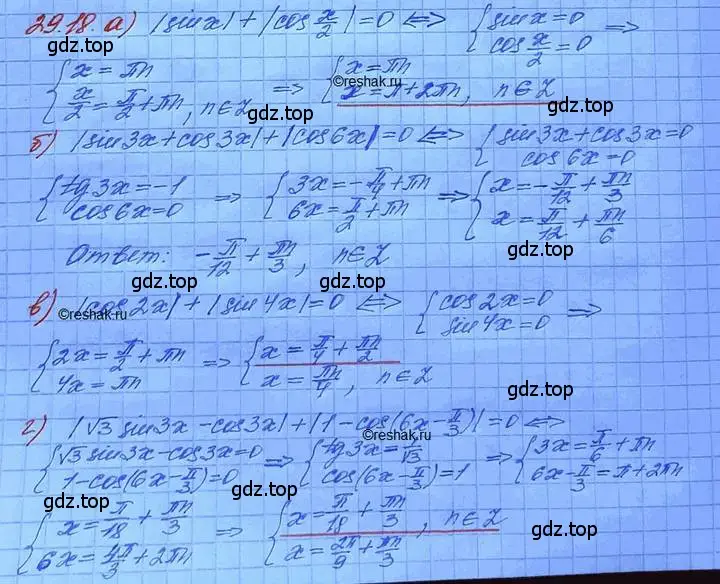 29.18. а) |sin x| + |cos x/2| = 0 <=> { sin x = 0
gdz.top
cos x/2 = 0 =>
gdz.top
{ x = πn
x/2 = π/2 + πn, n∈Z => { x = πn
©reshak.ru
x = π + 2πn, n∈Z
gdz.top
gdz.top
б) |sin3x+cos3x|+|cos6x|=0 <=> { sin3x+cos3x=0
cos6x=0
{ tg3x=-1
cos6x=0 => { 3x=-π/4+πn
6x=π/2+πn => { x=-π/12+πn/3
x=π/12+πn/6
Ответ: -π/12+πn/3, n∈Z
gdz.top
gdz.top
в) |cos2x|+|sin4x|=0 <=> { cos2x=0
sin4x=0 =>
©reshak.ru
gdz.top
{ 2x=π/2+πn
4x=πn => { x=π/4+πn/2
x=πn/4, n∈Z
gdz.top
г) |√3 sin3x-cos3x|+|1-cos(6x-π/3)|=0 <=>
©reshak.ru
{ √3 sin3x-cos3x=0
1-cos(6x-π/3)=0 => { tg3x=1/√3
cos(6x-π/3)=1 => { 3x=π/6+πn
6x-π/3=π+2πn
gdz.top
gdz.top
{ x=π/18+πn/3
6x=4π/3+2πn => { x=π/18+πn/3, n∈Z
x=2π/9+πn/3
gdz.top
gdz.top